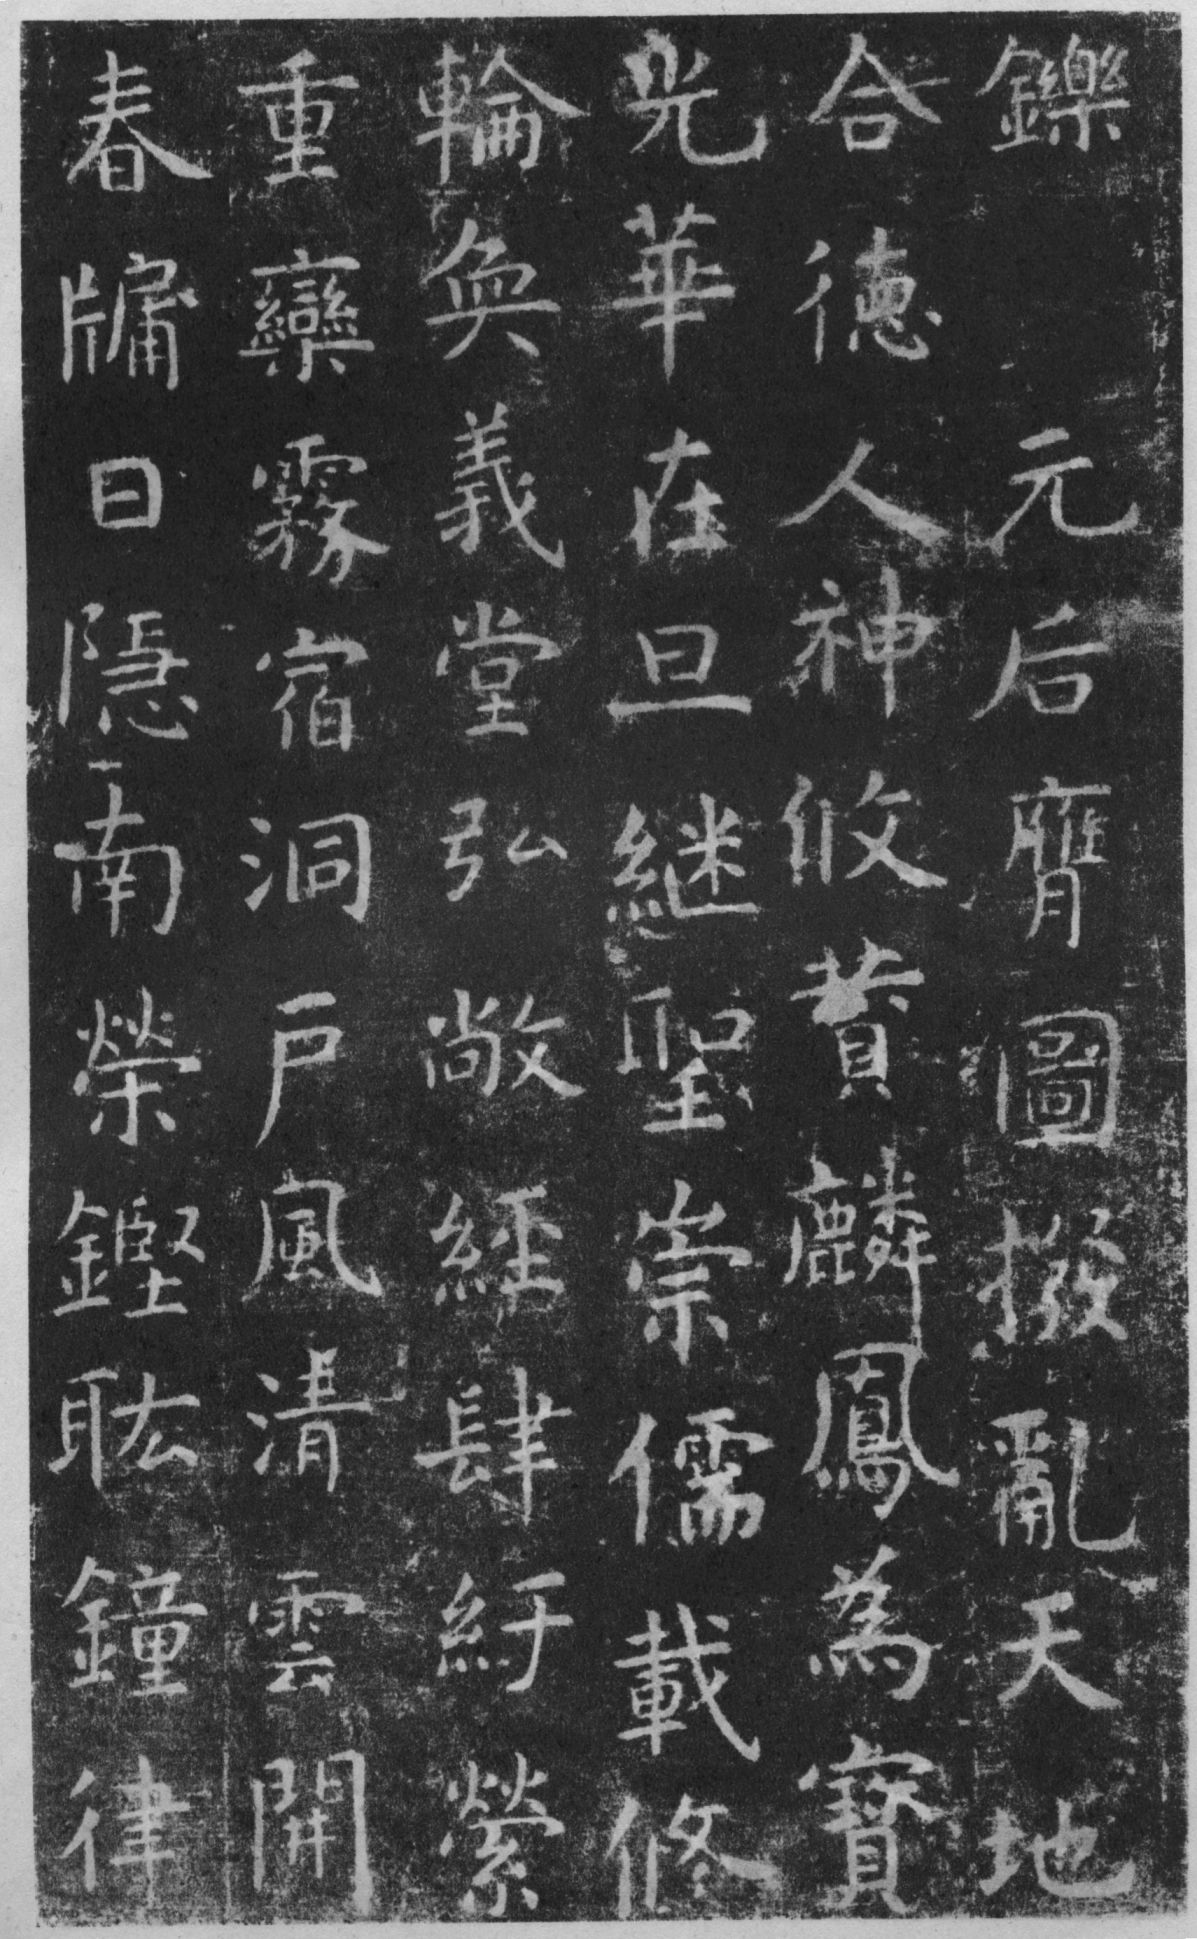 鑠 元后膺圖撥亂天地
合德人神攸賛麟鳳為寶
光華在旦継聖崇儒載修
輪奐義堂弘敞經肆紆縈
重欒霧宿洞戶風清雲開
春牖日隱南榮鏗耾鐘律